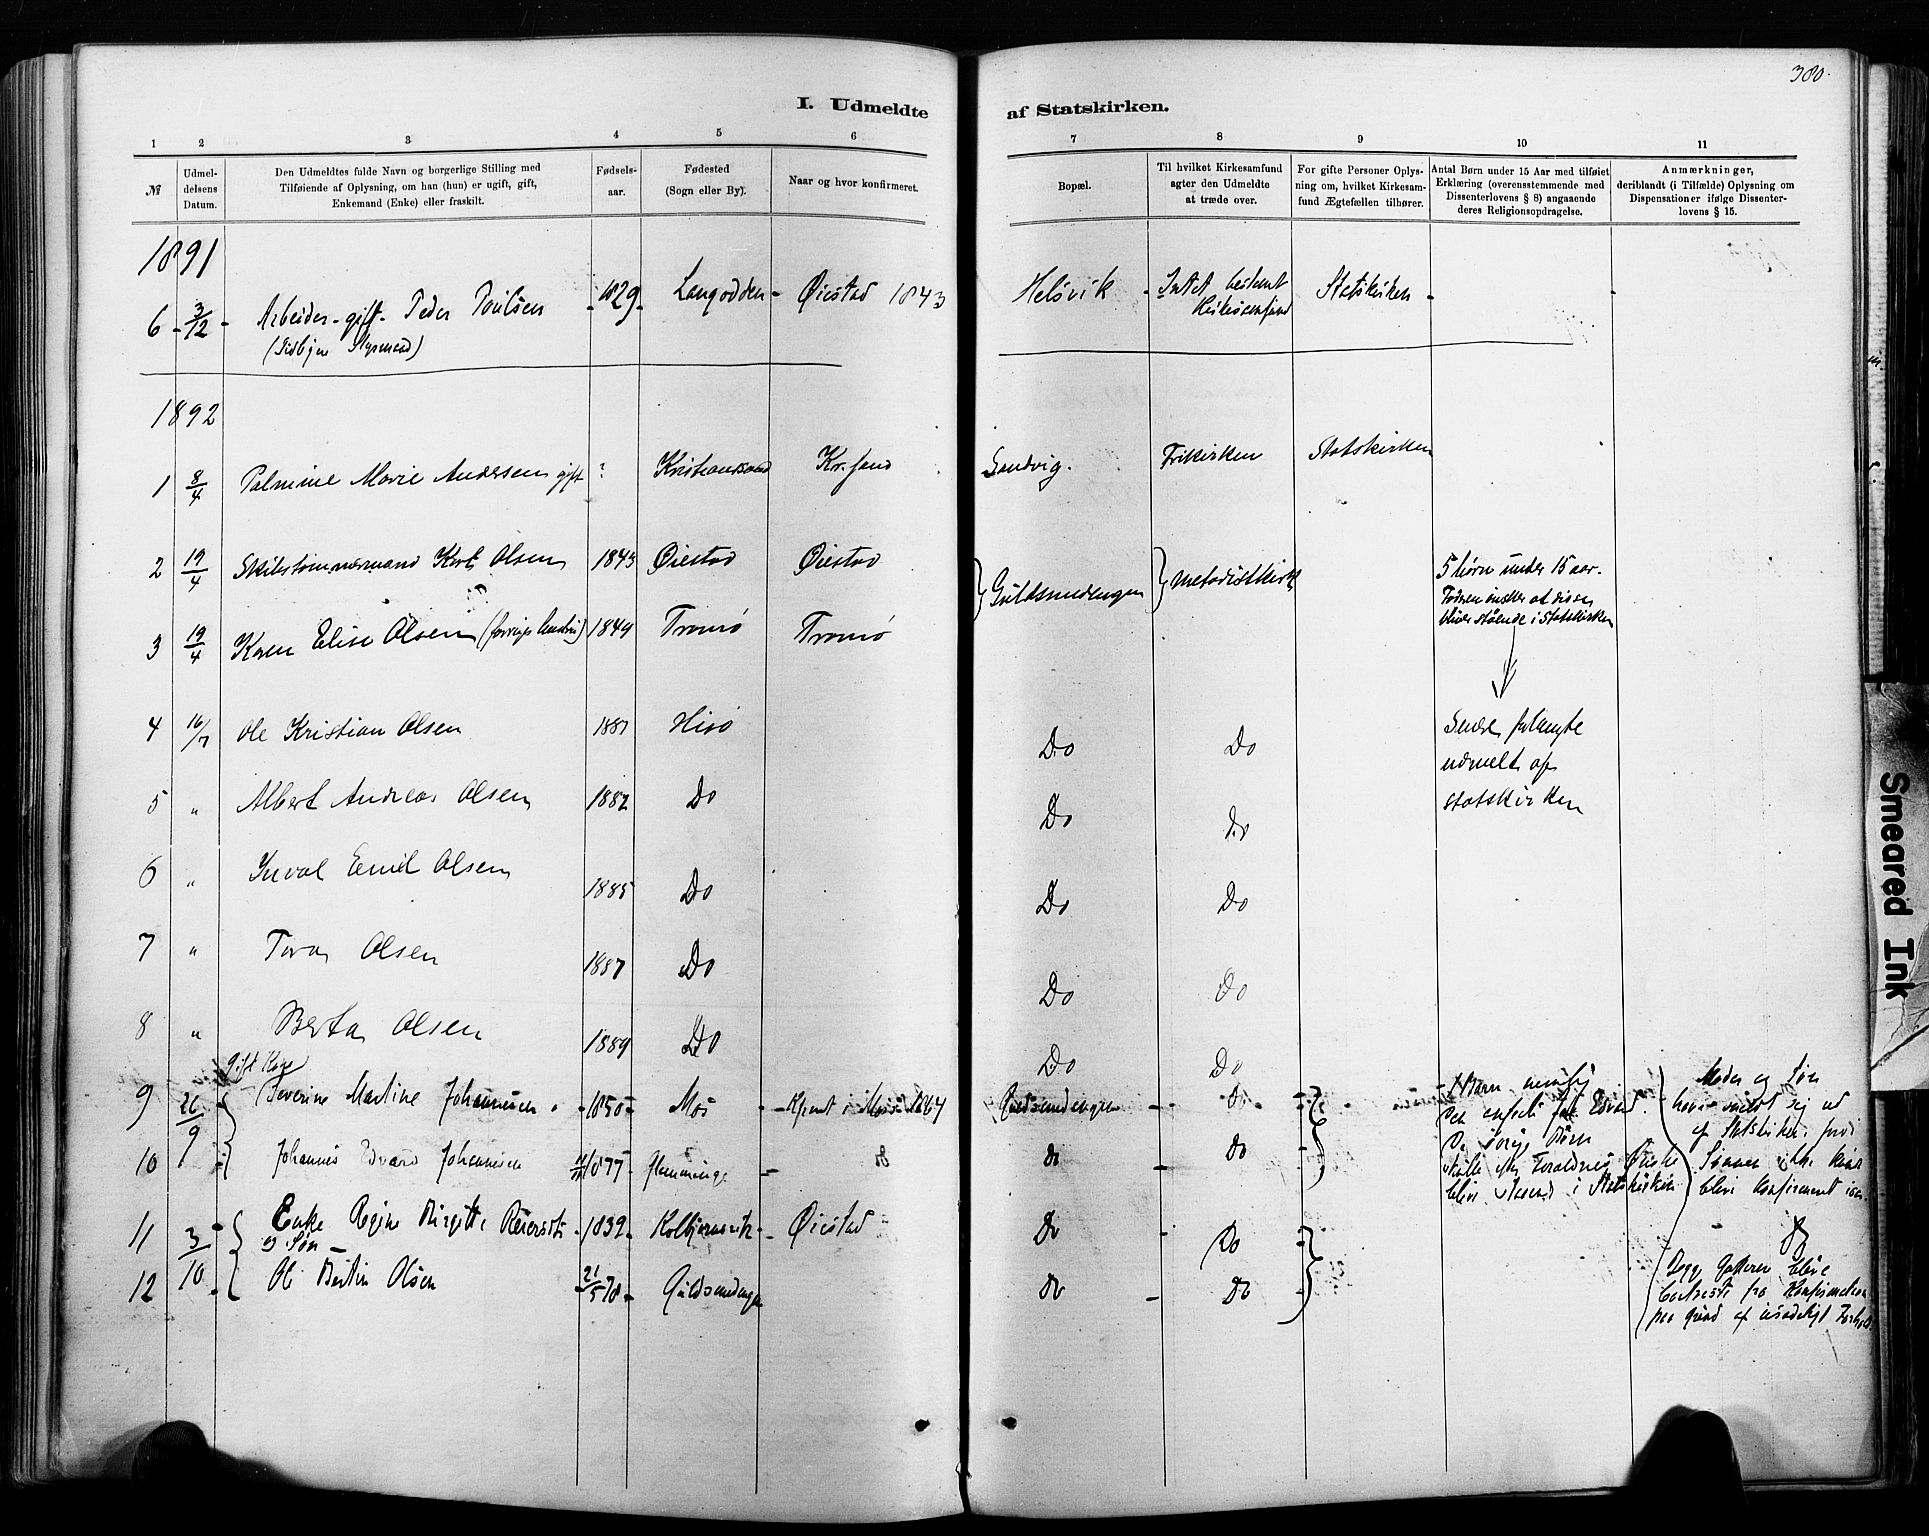 380.
I. Udmeldte af Statskirken.
1 2 3 4 5 6 7 8 9 10 11
№
Udmeldelsens Datum.
Den Udmeldtes fulde Navn og borgerlige Stilling med Tilføiende af Oplysning, om han (hun) er ugift, gift, Enkemand (Enke) eller fraskilt.
Fødselsaar.
Fødested (Sogn eller By).
Naar og hvor konfirmeret.
Bopæl.
Til hvilket Kirkesamfund agter den Udmeldte at træde over.
For gifte Personer Oplysning om, hvilket Kirkesamfund Ægtefællen tilhører.
Antal Børn under 15 Aar med tilføiet Erklæring (overensstemmende med Dissenterlovens § 8) angaaende deres Religionsopdragelse.
Anmærkninger, deriblandt (i Tilfælde) Oplysning om Dispensationer ifølge Dissenterlovens § 15.
1891
6 - 3/12 - Arbeider - gift - Peder Poulsen - 1829 - Langodden - Øiestad 1843 Helsvik - Intet bestemt Kirkesamfund Statskirken -
1892
1 8/4 Palmine Marie Andersen gift ? Kristiansand Kr.sand Sandvig. Frikirken Statskirken
2 19/4 Skibstømmermand Karl Olsen 1843 Øiestad Øiestad } Guldsmedengen } Metodistkirk 5 børn under 15 aar.
3 19/4 Karen Elise Olsen (forriges hustru) 1849 Tromø Tromø
Fædren ønsker at disse
bliver stående i Statskirken
4 16/7 Ole Kristian Olsen 1881 Hisø Do Do
Senere forlangte
udmeldt af
statskirken
5 " Albert Andreas Olsen 1882 Do Do Do
6 " Emil Olsen 1885 Do Do Do
7 " Tora Olsen 1887 Do Do Do
8 " Berta Olsen 1889 Do Do Do
Gift Kone
9 26/9 { Severine Martine Johannesen - 1850 - Mos - i Mos 1864 Guldsmedengen - Do
10 Johannes Edvard Johannesen 1877 - Flemminge - Do Do Do
Børn nemlig
Edvard.
De øvrige Børn
Forældres Ønske
blive i Statskirken
Moder og Søn
have meldt sig ud
af Statskirken, fordi
Sønnen ikke kan
blive konfirmeret
11 3/10 { Enke Regine Birgitte - 1832 - Kolbjørnsvik - Øiestad Do - Do
og Søn
12 Ole Bertin Olsen 21/5 78 - Guldsmedengen Do - Do
Konfirmation
paa Grund af usædeligt Forhold
Smeared Ink